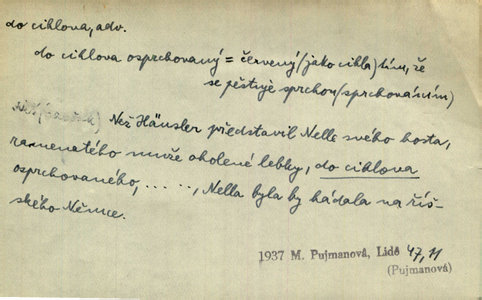 do cihlova, adv.
do cihlova osprchovaný = červený (jako cihla) tím, že
se pěstuje sprchou (sprchováním)
Než Häusler představil Nelle svého hosta,
ramenatého muže oholené lebky, do cihlova
osprchovaného, . . . . ., Nella byla by hádala na říš-
ského Němce.
1937 M. Pujmanová, Lidé 47, 11
(Pujmanová)